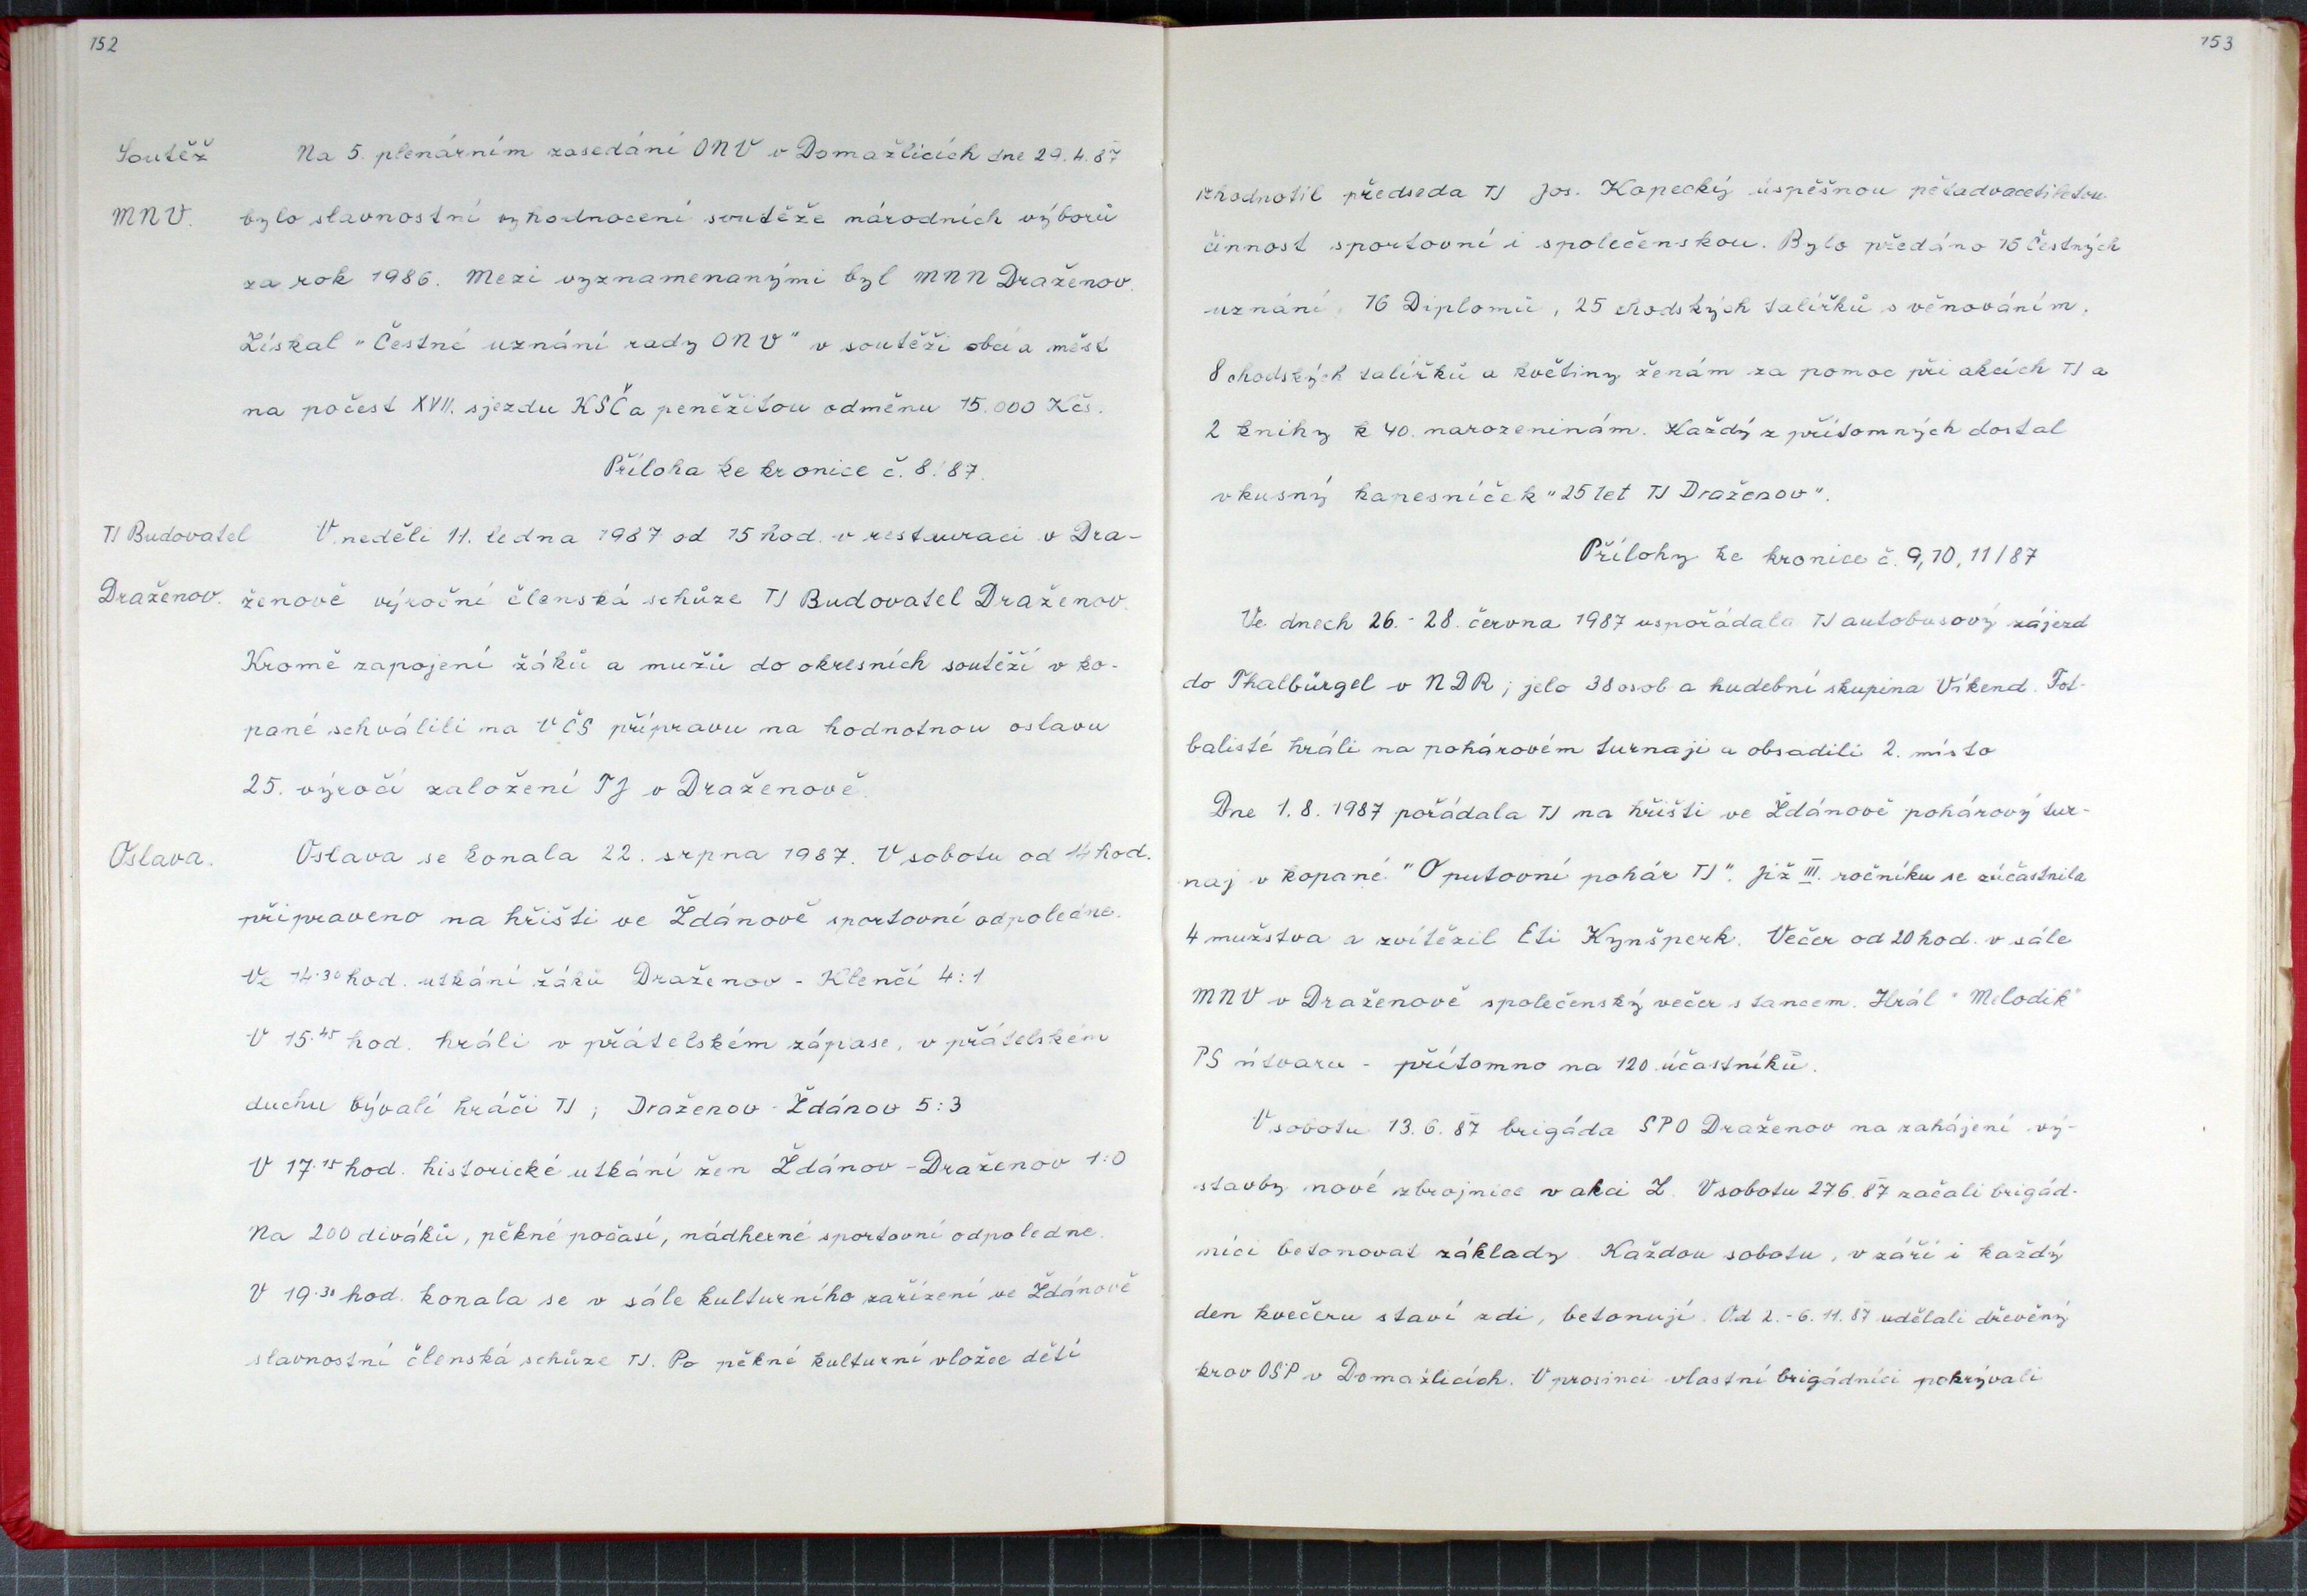 152
Soutěž Na 5. plenárním zasedání ONV v Domažlicích dne 29.4.87
MNV. bylo slavnostní vyhodnocení soutěže národních výborů
za rok 1986. Mezi vyznamenanými byl MNN Draženov.
Získal "Čestné uznání rady ONV" v soutěži obcí a měst
na počest XVII. sjezdu KSČ a peněžitou odměnu 15.000 Kčs.
Příloha ke kronice č. 8/87.
TJ Budovatel V neděli 11. ledna 1987 od 15 hod. v restauraci v Dra-
Draženov. ženově výroční členská schůze TJ Budovatel Draženov.
Kromě zapojení žáků a mužů do okresních soutěží v ko-
pané schválili na VČS přípravu na hodnotnou oslavu
25. výročí založení TJ v Draženově.
Oslava. Oslava se konala 22. srpna 1987. V sobotu od 14 hod.
připraveno na hřišti ve Ždánově sportovní odpoledne.
Ve 14.30 hod. utkání žáků Draženov - Klenčí 4:1
V 15.45 hod. hráli v přátelském zápase, v přátelském
duchu bývalí hráči TJ; Draženov - Ždánov 5:3
V 17.15 hod. historické utkání žen Ždánov - Draženov 1:0
Na 200 diváků, pěkné počasí, nádherné sportovní odpoledne.
V 19.30 hod. konala se v sále kulturního zařízení ve Ždánově
slavnostní členská schůze TJ. Po pěkné kulturní vložce dětí
153
zhodnotil předseda TJ Jos. Kopecký úspěšnou pětadvacetiletou
činnost sportovní i společenskou. Bylo předáno 15 čestných
uznání, 16 Diplomů, 25 chodských talířků s věnováním,
8 chodských talířků a květiny ženám za pomoc při akcích TJ a
2 knihy k 40. narozeninám. Každý z přítomných dostal
vkusný kapesníček "25 let TJ Draženov".
Přílohy ke kronice č. 9, 10, 11/87
Ve dnech 26. - 28. června 1987 uspořádala TJ autobusový zájezd
do Thalbürgel v NDR; jelo 38 osob a hudební skupina Víkend. Fot-
balisté hráli na pohárovém turnaji a obsadili 2. místo
Dne 1.8.1987 pořádala TJ na hřišti ve Ždánově pohárový tur-
naj v kopané "O putovní pohár TJ". Již III. ročníku se zúčastnila
4 mužstva a zvítězil Eti Kynšperk. Večer od 20 hod. v sále
MNV v Draženově společenský večer s tancem. Hrál "Melodik"
PS útvaru - přítomno na 120 účastníků.
V sobotu 13.6.87 brigáda SPO Draženov na zahájení vý-
stavby nové zbrojnice v akci Z. V sobotu 27.6.87 začali brigád-
níci betonovat základy. Každou sobotu, v září i každý
den kvečeru staví zdi, betonují. Od 2.-6.11.87 udělali dřevěný
krov OSP v Domažlicích. V prosinci vlastní brigádníci pokrývali